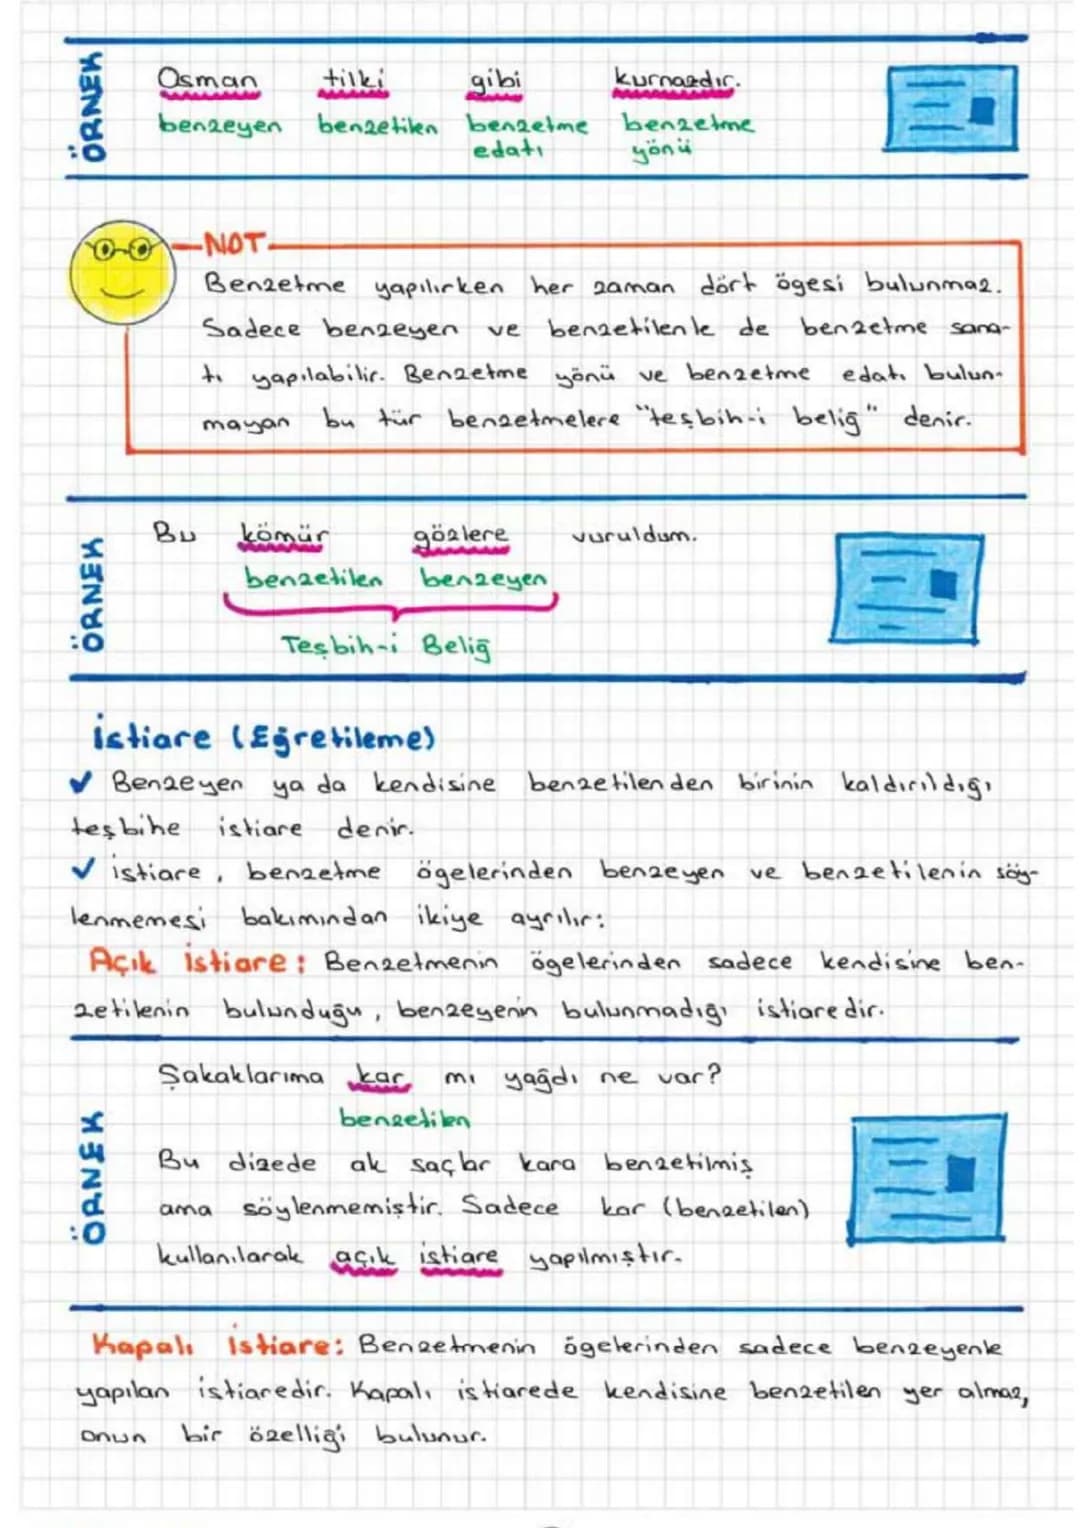 ÖRNEK
Osman tilki gibi kurnazdır.
benzeyen benzetilen benzetme benzetme
edatı yönü
NOT
Benzetme yapılırken her zaman dört ögesi bulunmaz.
Sadece benzeyen ve benzetilenle de benzetme sana-
tı yapılabilir. Benzetme yönü ve benzetme edatı bulun-
mayan bu tür benzetmelere "teşbih-i beliğ" denir.
ÖRNEK
Bu kömür gözlere vuruldum.
benzetilen benzeyen
Teşbih-i Beliğ
İstiare (Eğretileme)
✓ Benzeyen ya da kendisine benzetilenden birinin kaldırıldığı
teşbihe istiare denir.
✓ istiare, benzetme ögelerinden benzeyen ve benzetilenin söy-
lenmemesi bakımından ikiye ayrılır:
Açık İstiare: Benzetmenin ögelerinden sadece kendisine ben-
zetilenin bulunduğu, benzeyenin bulunmadığı istiaredir.
ÖRNEK
Şakaklarıma kar mı yağdı ne var?
benzetilen
Bu dizede ak saçlar kara benzetilmiş
ama söylenmemiştir. Sadece kar (benzetilen)
kullanılarak açık istiare yapılmıştır.
Kapalı İstiare: Benzetmenin ögelerinden sadece benzeyenle
yapılan istiaredir. Kapalı istiarede kendisine benzetilen yer almaz,
onun bir özelliği bulunur.